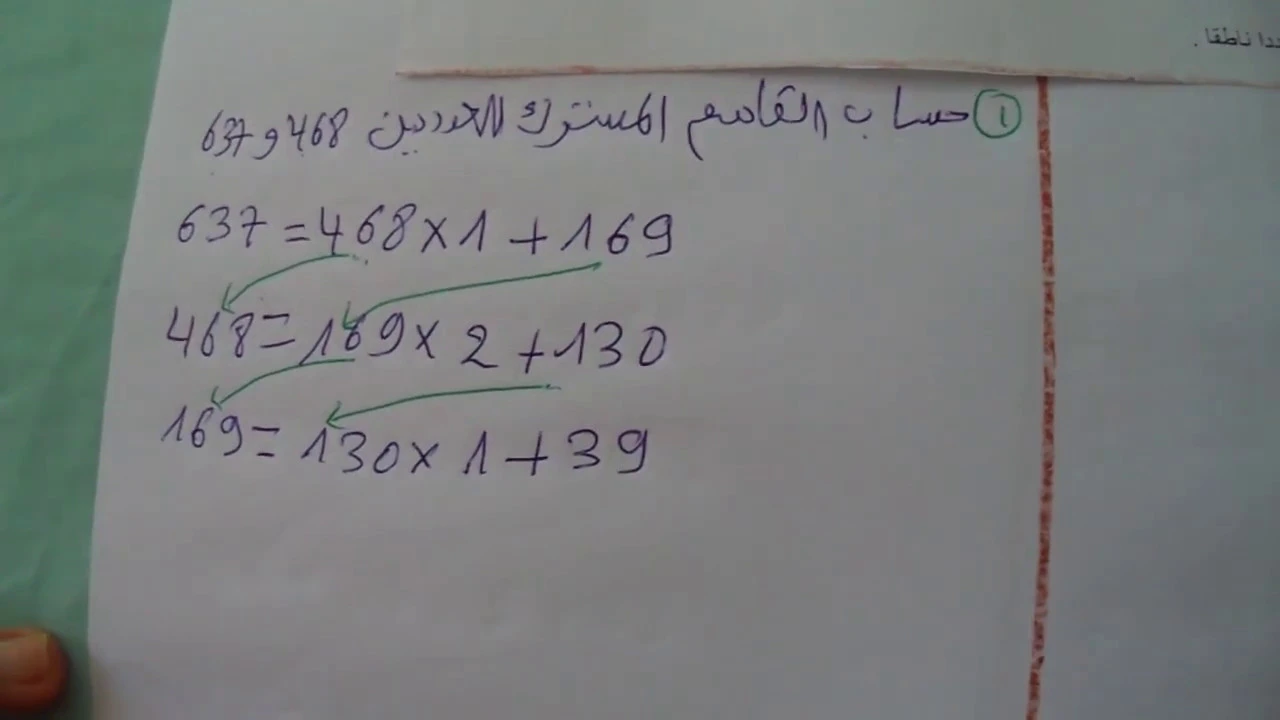 ددا ناطقا .
① حساب القاسم المشترك للعددين 468 و 637
637 = 468 × 1 + 169
468 = 169 × 2 + 130
169 = 130 × 1 + 39